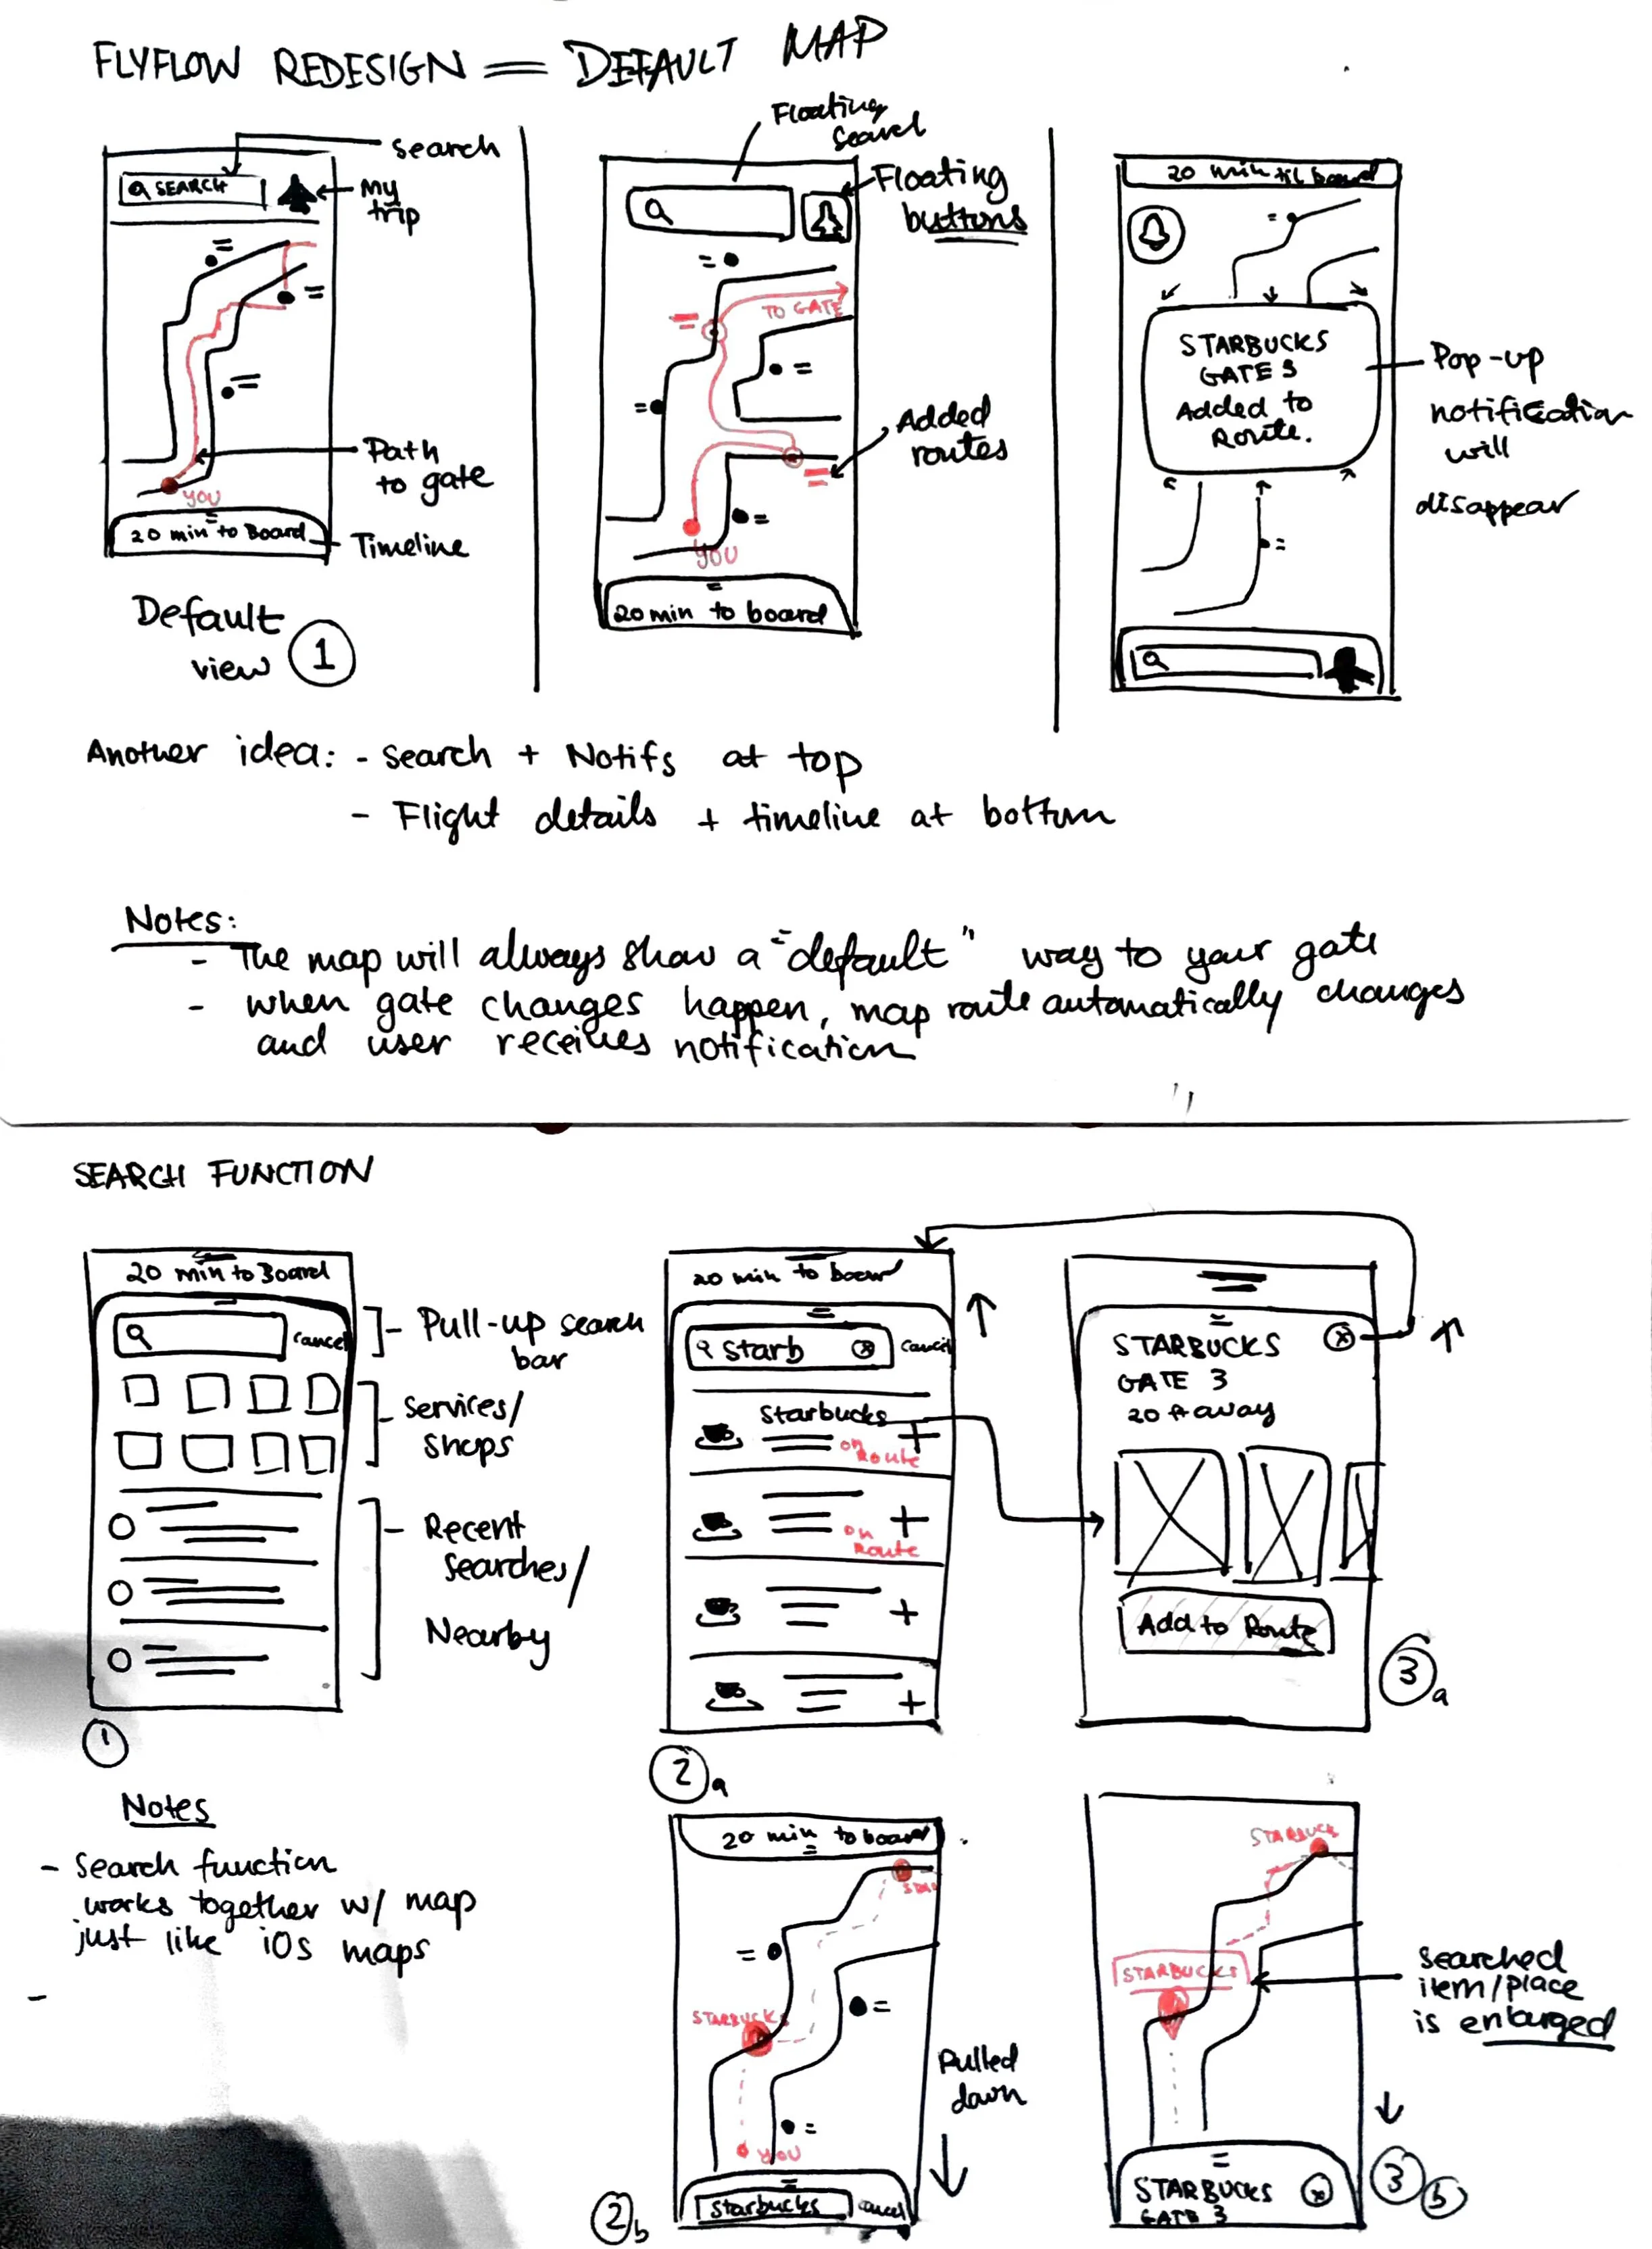 FLYFLOW REDESIGN = DEFAULT MAP
search
SEARCH
My
trip
Path
to gate
YOU
20 min to Board
Timeline
Default
view 1
Floating
Search
Floating
buttons
TO GATE
Added
routes
YOU
20 min to board
20 min til board
STARBUCKS
GATE 3
Added to
Route.
Pop-up
notification
will
disappear
Another idea: - search + Notifs at top
- Flight details + timeline at bottom
Notes:
- The map will always show a "default" way to your gate
- when gate changes happen, map route automatically changes
and user receives notification
SEARCH FUNCTION
20 min to Board
cancel
Pull-up search
bar
Services/
Shops
Recent
Searches/
Nearby
1
20 min to board
Starb
cancel
Starbucks
on
Route
on
Route
2a
STARBUCKS
GATE 3
20 ft away
Add to Route
3a
Notes
- Search function
works together w/ map
just like iOs maps
-
20 min to board
STARBUCKS
YOU
Starbucks cancel
Pulled
down
2b
STARBUCK
STARBUCKS
searched
item/place
is enlarged
STARBUCKS
GATE 3
3b